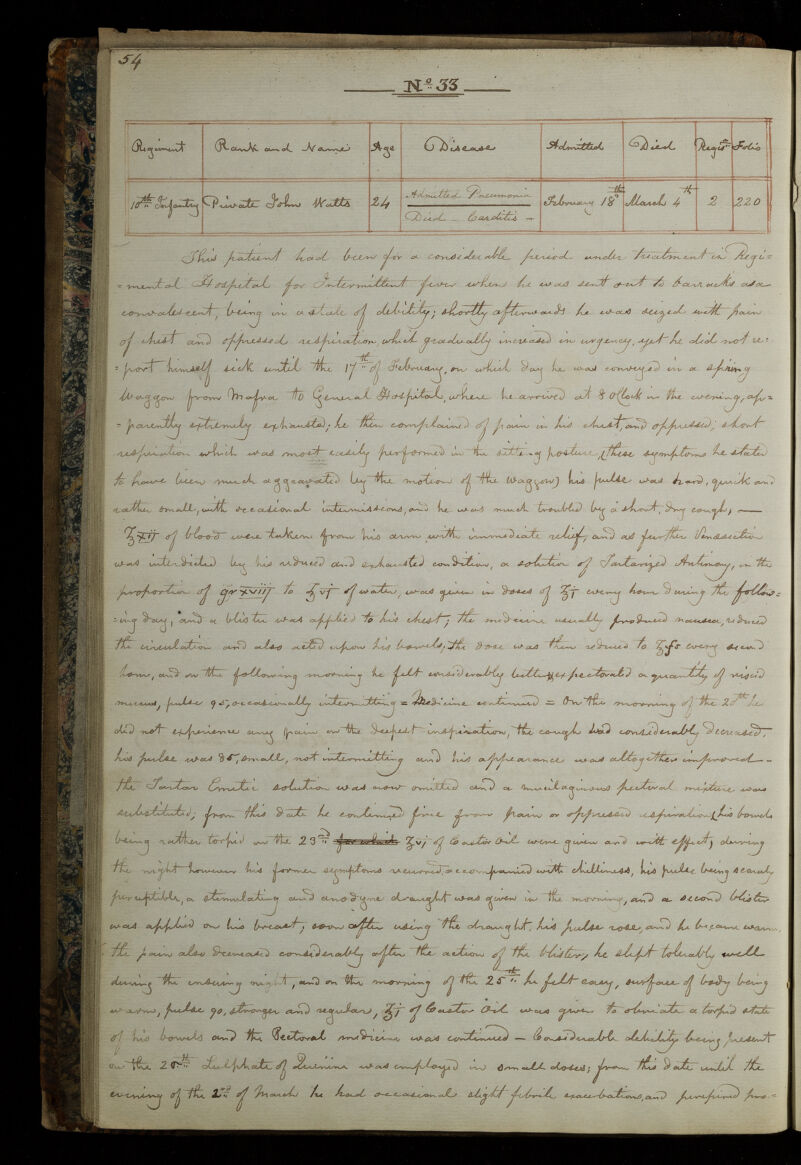 54
No. 33
Regiment Rank and Name Age Disease Admitted Died Regisr. Folio
10th Infantry Private John Watts 24 Admitted Pneumonia Died - Carditis - February 18th March 4th 2 220
This patient had been for a considerable period under treatment in Regi=
=mental Hospital for Intermittent fever when he was sent out to barracks as a
convalescent, being in a state of debility; shortly afterwards he was seized with pain
of chest and oppressed respiration, which gradually increased in urgency, yet he did not re=
=port himself sick until the 17th of February, on which day he was conveyed in a spring
Waggon from Mafra to General Hospital, where he arrived at 8 oClock in the evening, ap=
=parently extremely exhausted; he then complained of pain in his chest, and oppressed, short
respiration which was most easily performed in the sitting posture, (these symptoms he stated
to have been much aggravated by the motion of the waggon) his pulse was hard, quick and
rather small, with occasional intermissions, and he was much troubled by a short, dry cough, —
℥xij of blood were taken from his arm with immediate relief, and as further Venesection
was interdicted by his reduced and exhausted condition, a solution of Tartarized Antimony, in the
proportion of gr xviij to ℥vj of water, was given in doses of ℥j every hour during the follow=
=ing day, and a blister was applied to his chest; the medicine usually produced nausea, reduced
the circulation and also acted upon his bowels; the dose was then reduced to ℥fs every second
hour, and on the following morning he felt considerably better, expectorated a quantity of viscid
mucus, pulse 95, occasionally intermitting = Medicine continued = On the morning of the 20th he
did not experience any pain on the deepest inspiration, the cough had considerably decreased,
his pulse was 85, small, not intermitting and his appearance was altogether improved -
the Tartar Emetic solution was now omitted and a mucilaginous pectoral mixture was
substituted; from this date he continued free from pain or oppressed respiration, his bowels
being rather torpid on the 23rd for which ℥vj of Castor Oil were given and with effect, during
the night however his former symptoms recurred, accompanied with chilliness, his pulse being scarcely
perceptible, a stimulating and anodyne draught was given in the morning, and a second blister
was applied on his breast; soon after using the draught, his pulse rose, and he became warm,
the pain also decreased considerably after the action of the blister, he slept tolerably well
during the ensuing night, and on the morning of the 25th he felt easy, surface of body being
warm, pulse 90, stronger and regular, ℥j of Castor Oil was given to obviate a torpid state
of his bowels and the Pectoral medicine was continued - Considerable debility being present
on the Sulphate of Quinine was employed in small doses; from this date until the
evening of the 2nd of March he had occasional slight febrile exacerbations, and perspired pro=